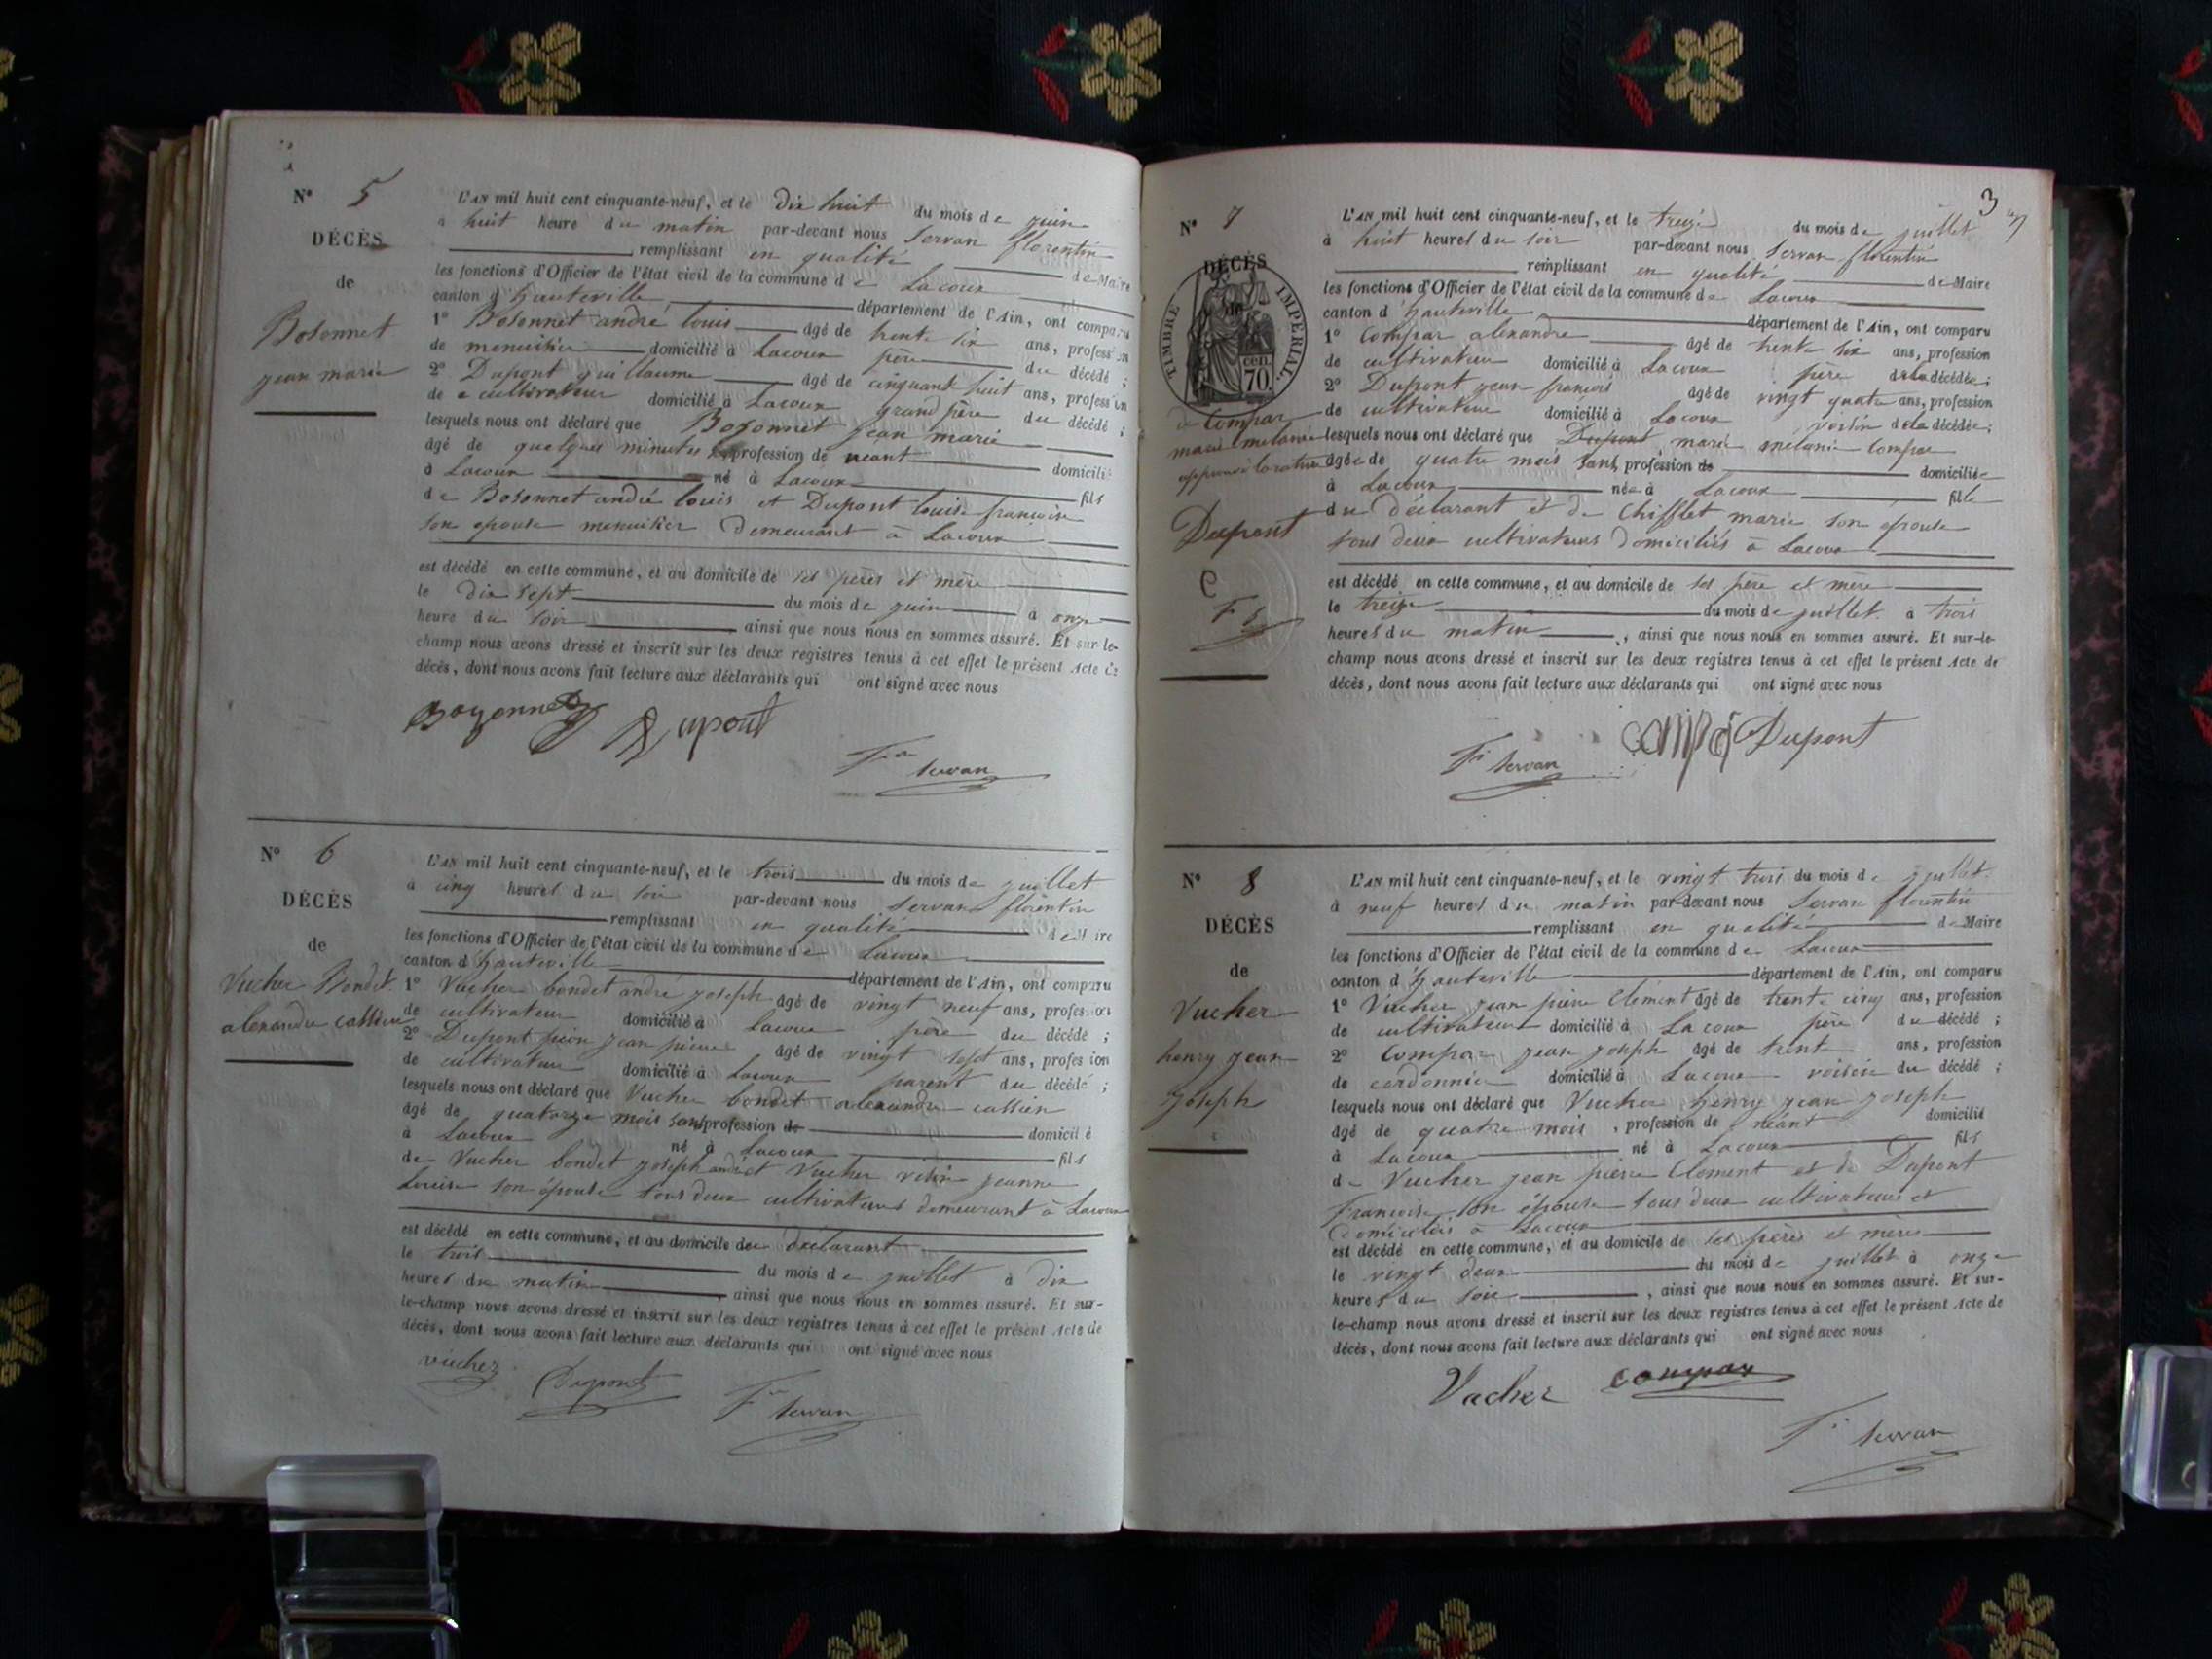 N° 5
DÉCÈS
de
Bosonnet
jean marie
L'AN mil huit cent cinquante-neuf, et le Dix huit du mois de juin
à huit heure du matin par-devant nous Servan florentin
remplissant en qualité de Maire
les fonctions d'Officier de l'état civil de la commune de Lacoux
canton d'hauteville département de l'Ain, ont comparu
1° Bosonnet andré louis âgé de trente six ans, profession
de menuisier domicilié à Lacoux père du décédé ;
2° Dupont guillaume âgé de cinquant huit ans, profession
de cultivateur domicilié à Lacoux grand père du décédé ;
lesquels nous ont déclaré que Bosonnet jean marie
âgé de quelques minutes profession de néant domicilié
à Lacoux né à Lacoux fils
de Bosonnet andré louis et Dupont louise françoise
son épouse menuisier demeurant à Lacoux
est décédé en cette commune, et au domicile de ses pères et mère
le dix sept du mois de juin à onze
heure du soir ainsi que nous nous en sommes assuré. Et sur-le-
champ nous avons dressé et inscrit sur les deux registres tenus à cet effet le présent Acte de
décès, dont nous avons fait lecture aux déclarants qui ont signé avec nous
Bozonnet Dupont
Fin Servan
N° 6
DÉCÈS
de
Vucher Bondet
alexandre cassien
L'AN mil huit cent cinquante-neuf, et le trois du mois de juillet
à cinq heures du soir par-devant nous Servan florentin
remplissant en qualité de Maire
les fonctions d'Officier de l'état civil de la commune de Lacoux
canton d'hauteville département de l'Ain, ont comparu
1° Vucher bondet andré joseph âgé de vingt neuf ans, profession
de cultivateur domicilié à Lacoux père du décédé ;
2° Dupont jean pierre âgé de vingt sept ans, profession
de cultivateur domicilié à Lacoux parent du décédé ;
lesquels nous ont déclaré que Vucher bondet alexandre cassien
âgé de quatorze mois sans profession de domicilié
à Lacoux né à Lacoux fils
de Vucher bondet joseph andré et Vucher jeanne
Louise son épouse tous deux cultivateurs demeurant à Lacoux
est décédé en cette commune, et au domicile du déclarant
le trois du mois de juillet à dix
heures du matin ainsi que nous nous en sommes assuré. Et sur-
le-champ nous avons dressé et inscrit sur les deux registres tenus à cet effet le présent Acte de
décès, dont nous avons fait lecture aux déclarants qui ont signé avec nous
vucher Dupont Fin Servan
3
N° 7
DÉCÈS
de
TIMBRE IMPÉRIAL
70 cen.
de Compar
marie melanie
Dupont
C
F S
L'AN mil huit cent cinquante-neuf, et le treize du mois de juillet
à huit heures du soir par-devant nous Servan florentin
remplissant en qualité de Maire
les fonctions d'Officier de l'état civil de la commune de Lacoux
canton d'hauteville département de l'Ain, ont comparu
1° Compar alexandre âgé de trente six ans, profession
de cultivateur domicilié à Lacoux père de la décédée ;
2° Dupont jean françois âgé de vingt quatre ans, profession
de cultivateur domicilié à Lacoux voisin de la décédée ;
lesquels nous ont déclaré que Dupont marie melanie Compar
âgée de quatre mois sans profession de domiciliée
à Lacoux née à Lacoux fille
du déclarant et de Chifflet marie son épouse
tous deux cultivateurs domiciliés à Lacoux
est décédé en cette commune, et au domicile de ses père et mère
le treize du mois de juillet à trois
heures du matin , ainsi que nous nous en sommes assuré. Et sur-le-
champ nous avons dressé et inscrit sur les deux registres tenus à cet effet le présent Acte de
décès, dont nous avons fait lecture aux déclarants qui ont signé avec nous
Fin Servan Dupont
N° 8
DÉCÈS
de
Vucher
henry jean
Joseph
L'AN mil huit cent cinquante-neuf, et le vingt trois du mois de juillet
à neuf heures du matin par-devant nous Servan florentin
remplissant en qualité de Maire
les fonctions d'Officier de l'état civil de la commune de Lacoux
canton d'hauteville département de l'Ain, ont comparu
1° Vucher jean pierre Clément âgé de trente cinq ans, profession
de cultivateur domicilié à Lacoux père du décédé ;
2° Compar jean joseph âgé de trente ans, profession
de cordonnier domicilié à Lacoux voisin du décédé ;
lesquels nous ont déclaré que Vucher henry jean joseph
âgé de quatre mois , profession de néant domicilié
à Lacoux né à Lacoux fils
de Vucher jean pierre Clement et de Dupont
Françoise son épouse tous deux cultivateurs et
Domiciliés à Lacoux
est décédé en cette commune, et au domicile de ses pères et mères
le vingt deux du mois de juillet à onze
heures du soir , ainsi que nous nous en sommes assuré. Et sur-
le-champ nous avons dressé et inscrit sur les deux registres tenus à cet effet le présent Acte de
décès, dont nous avons fait lecture aux déclarants qui ont signé avec nous
Vucher compar
Fin Servan